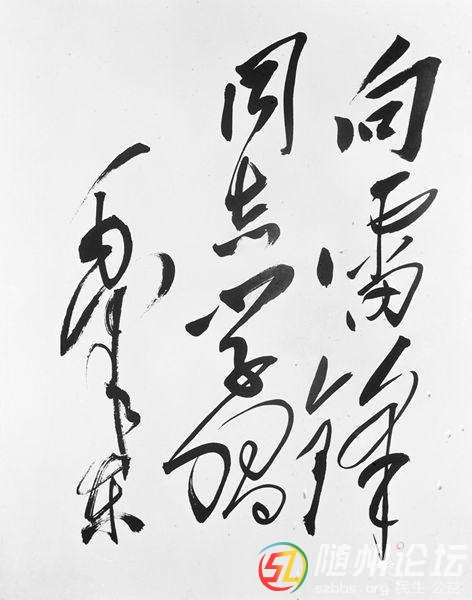 向雷锋
同志学习
毛泽东
随州论坛
szbbs.org 民生·公益